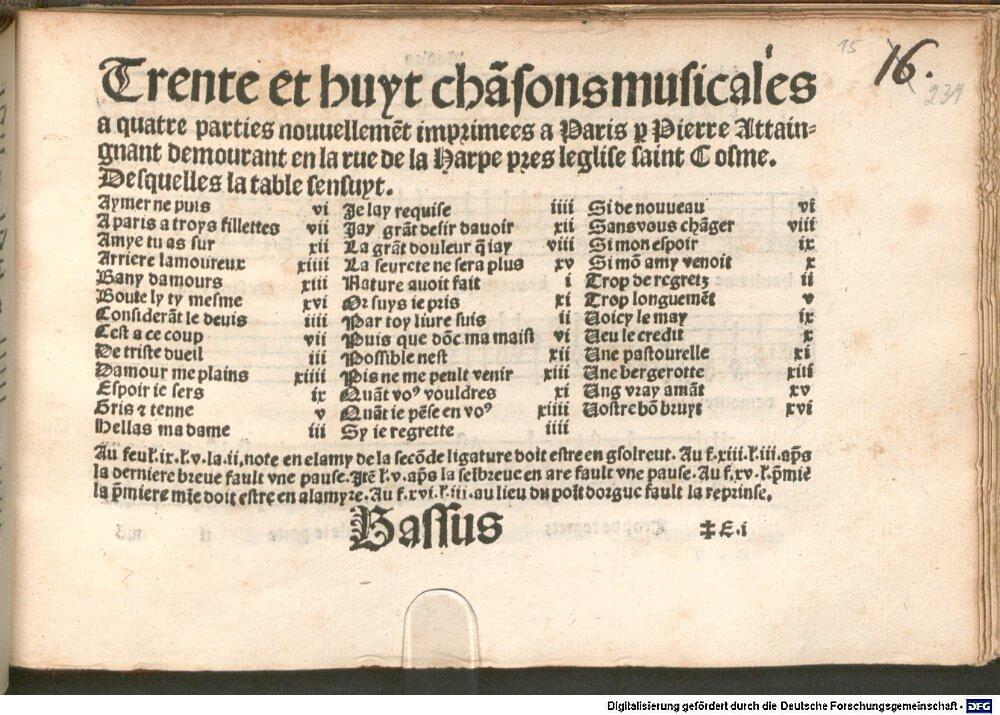 15 16.
231
Trente et huyt chãsons musicales
a quatre parties nouuellemẽt imprimees a Paris p̱ Pierre Attain-
gnant demourant en la rue de la Harpe pres leglise saint Cosme.
Desquelles la table sensuyt.
Aymer ne puis vi
A paris a troys fillettes vii
Amye tu as sur xii
Arriere lamoureux xiiii
Bany damours xiii
Boute ly ty mesme xvi
Considerãt le devis iiii
Cest a ce coup vii
De triste dueil iii
Damour me plains xiiii
Espoir ie sers ix
Gris ⁊ tenne v
Hellas madame iii
Je lay requise iiii
Jay grãt desir dauoir xii
La grãt douleur q̃ iay viii
La seurete ne sera plus xv
Nature auoit fait i
Or suys ie pris xi
Par toy liure suis ii
Puis que dõc ma maist vi
Possible nest xii
Pis ne me peult venir xiii
Quãt voꝰ vouldres xi
Quãt ie pẽse en voꝰ xiiii
Sy ie regrette iiii
Si de nouueau vi
Sans vous chãger viii
Si mon espoir ix
Si mõ amy venoit x
Trop de regretz ii
Trop longuemẽt v
Voicy le may ix
Veu le credit x
Vne pastourelle xi
Vne bergerotte xiii
Vng vray amãt xv
Vostre bõ bruyt xvi
Au feul. ix. l. v. la. ii, note en elamy de la secõde ligature doit estre en gsolreut. Au f. xiii. l. iii. ap̃s
la derniere breue fault vne pause. Jtẽ l. v. ap̃s la seibreue en are fault vne pause. Au f. xv. l. p̃miẽ
la p̃miere mie doit estre en alamyre. Au f. xvi. l. iii. au lieu du poĩt dorgue fault la reprinse.
Bassus ‡ E. i
Digitalisierung gefördert durch die Deutsche Forschungsgemeinschaft - DFG